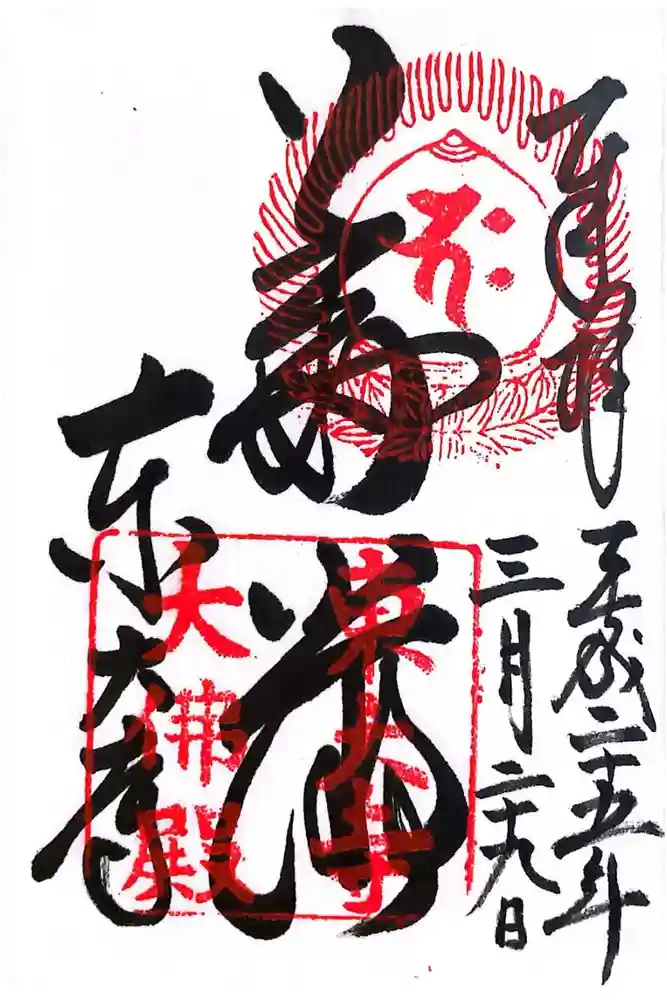 奉拝
平成二十五年
三月二十九日
華厳
東大寺
東大寺
大佛殿